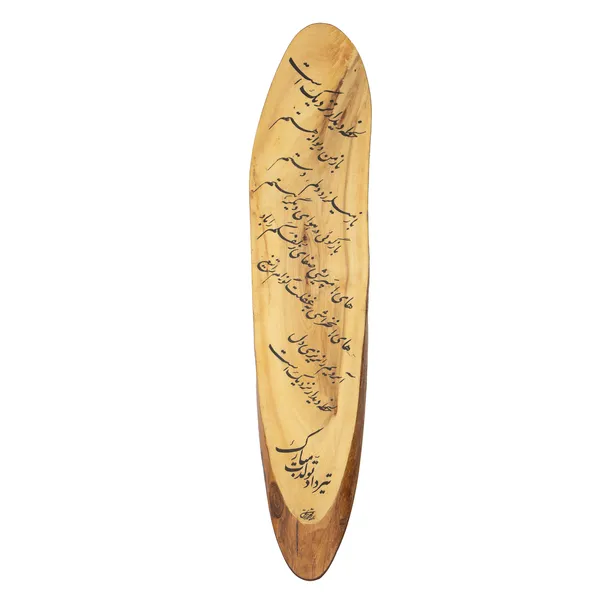 لحظه دیدار نزدیک است
باز من دیوانه مستم
باز میلرزد دلم دستم
باز گوئی در هوای دیگری هستم
های! نپریشی صفای زلفکم را باد
های! نخراشی به غفلت گونه ام را تیغ
آبرویم را نریزی دل
لحظه دیدار نزدیک است
تیرداد تولدت مبارک